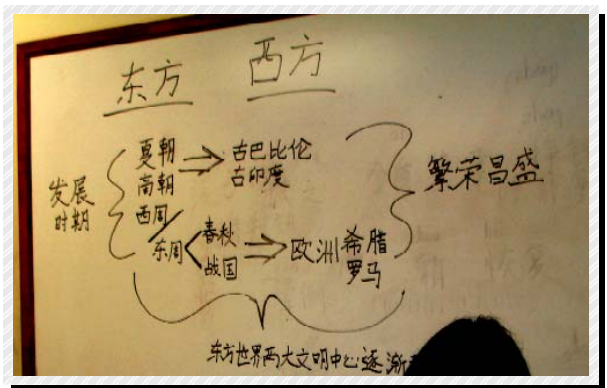 东方 西方
发展
时期
夏朝
南朝
西周
东周
春秋
战国
古巴比伦
古印度
欧洲
希腊
罗马
繁荣昌盛
东方世界两大文明中心逐渐